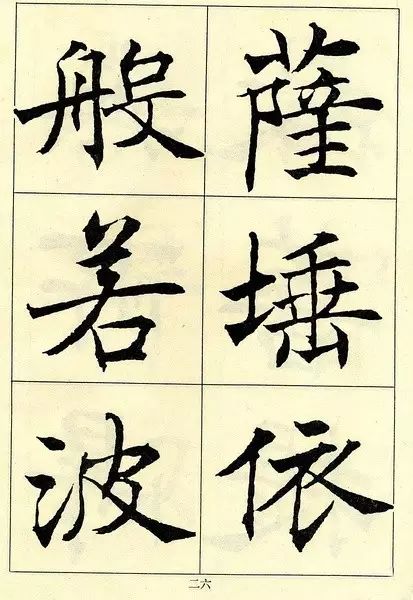 薩埵依
般若波
二六